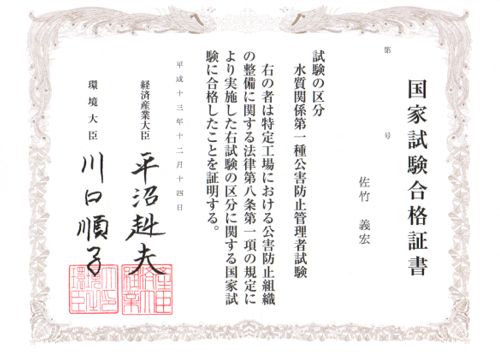 国家試験合格証書
第　号
佐竹 義宏
試験の区分
水質関係第一種公害防止管理者試験
右の者は特定工場における公害防止組織
の整備に関する法律第八条第一項の規定に
より実施した右試験の区分に関する国家試
験に合格したことを証明する。
平成十三年十二月十四日
経済産業大臣 平沼赳夫
環境大臣 川口順子